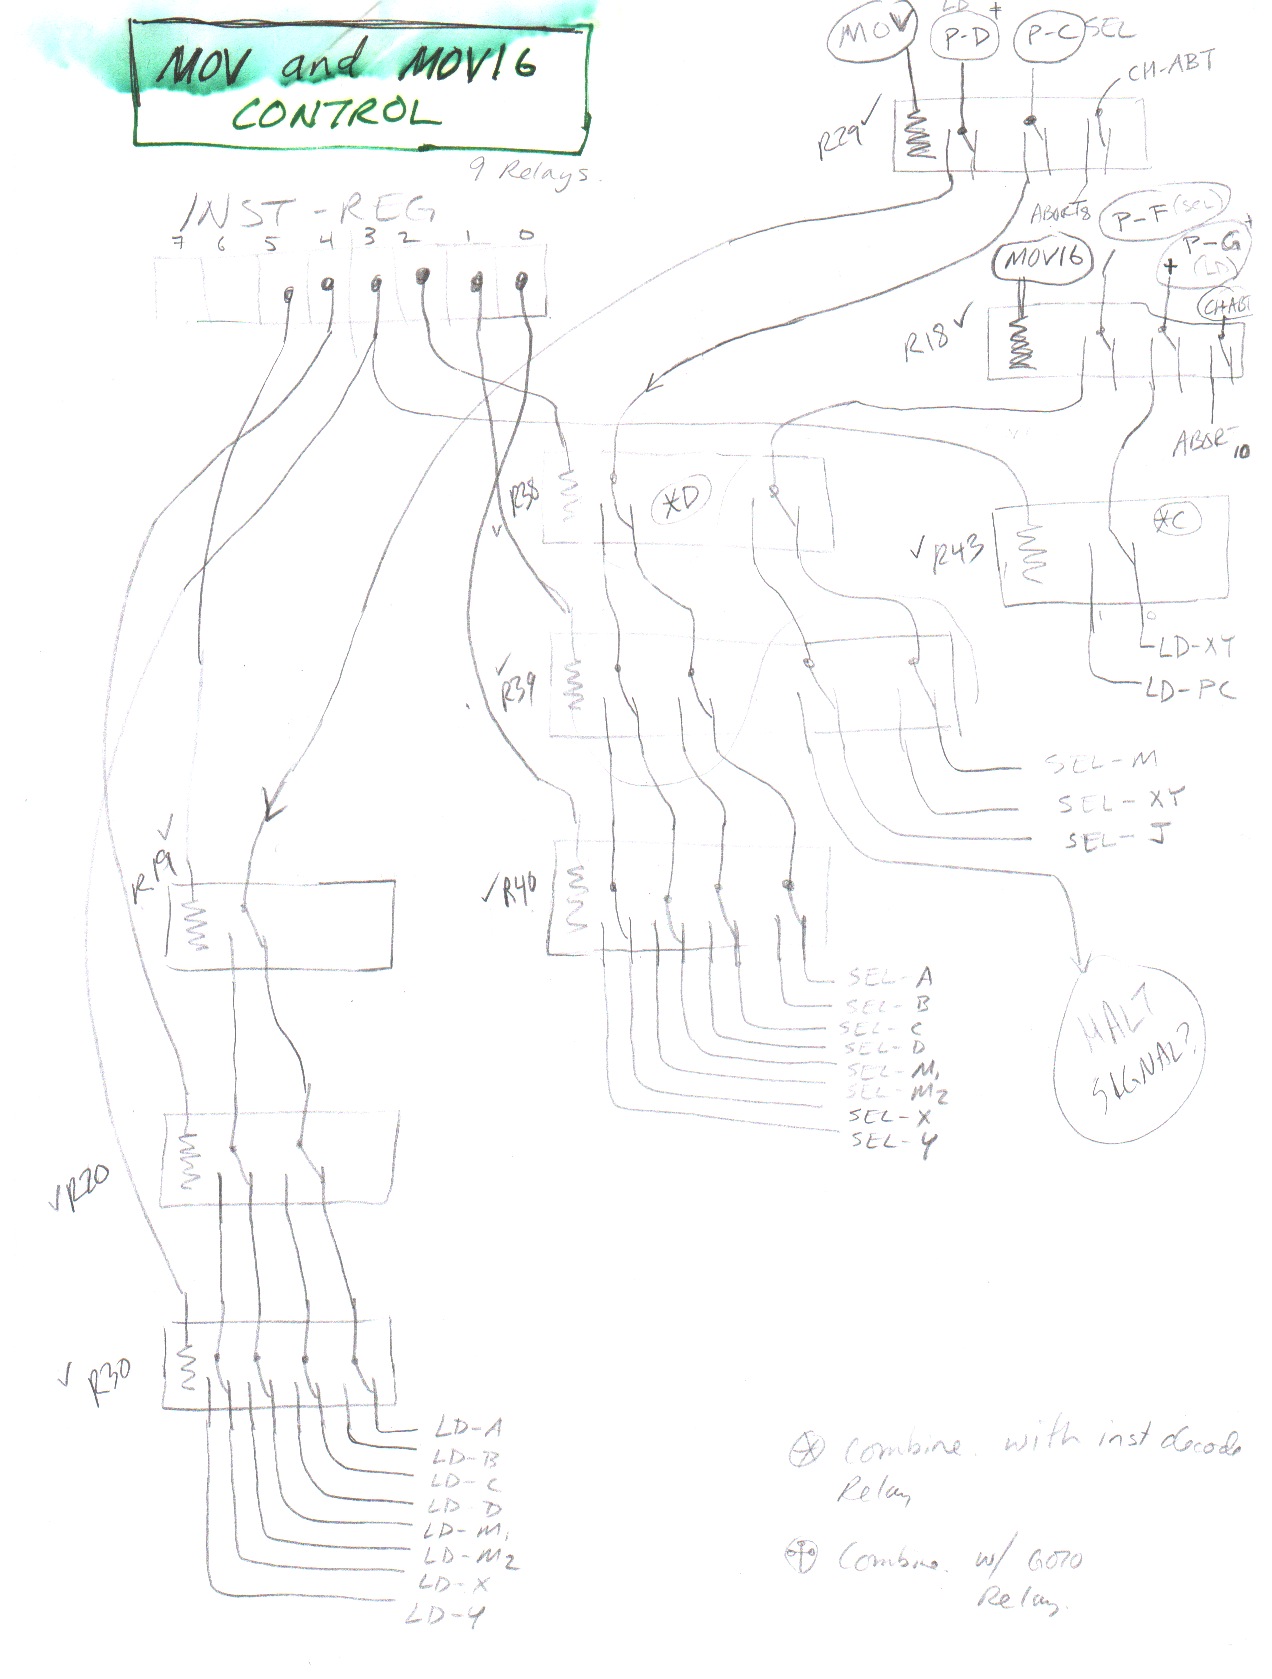 MOV and MOV16
CONTROL
9 Relays.
MOV
LD +
P-D
P-C SEL
CH-ABT
R29 ✓
ABORT8
P-F (SEL)
P-G +
+ (LD)
CH-ABT
MOV16
R18 ✓
ABORT 10
INST-REG
7 6 5 4 3 2 1 0
R38 ✓
*D
✓ R43
*C
1 0
LD-XY
LD-PC
✓ R39
SEL-M
SEL-XY
SEL-J
R19 ✓
✓ R40
SEL-A
SEL-B
SEL-C
SEL-D
SEL-M1
SEL-M2
SEL-X
SEL-Y
HALT
SIGNAL?
✓ R20
✓ R30
LD-A
LD-B
LD-C
LD-D
LD-M1
LD-M2
LD-X
LD-Y
* Combine with inst decode
Relay
+ Combine w/ GOTO
Relay.